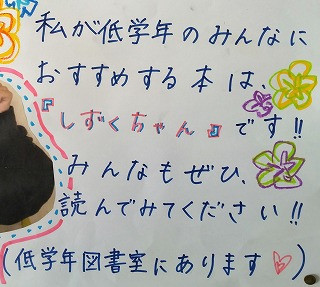 私が低学年のみんなに
おすすめする本は、
『しずくちゃん』です!!
みんなもぜひ、
読んでみてください!!
(低学年図書室にあります♡)